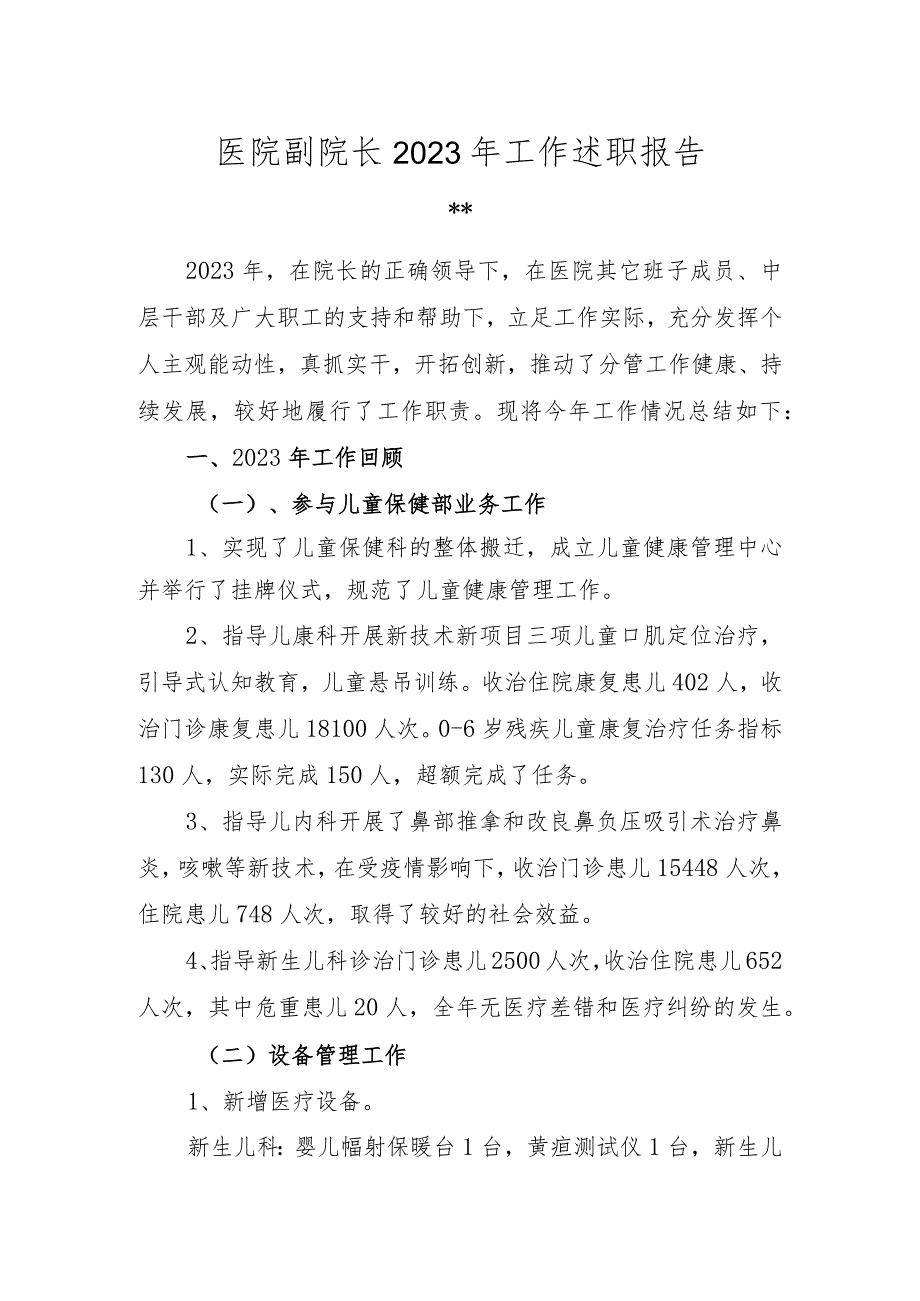 医院副院长 2023 年工作述职报告
**
2023 年，在院长的正确领导下，在医院其它班子成员、中
层干部及广大职工的支持和帮助下，立足工作实际，充分发挥个
人主观能动性，真抓实干，开拓创新，推动了分管工作健康、持
续发展，较好地履行了工作职责。现将今年工作情况总结如下：
一、2023 年工作回顾
（一）、参与儿童保健部业务工作
1、实现了儿童保健科的整体搬迁，成立儿童健康管理中心
并举行了挂牌仪式，规范了儿童健康管理工作。
2、指导儿康科开展新技术新项目三项儿童口肌定位治疗，
引导式认知教育，儿童悬吊训练。收治住院康复患儿 402 人，收
治门诊康复患儿 18100 人次。0-6 岁残疾儿童康复治疗任务指标
130 人，实际完成 150 人，超额完成了任务。
3、指导儿内科开展了鼻部推拿和改良鼻负压吸引术治疗鼻
炎，咳嗽等新技术，在受疫情影响下，收治门诊患儿 15448 人次，
住院患儿 748 人次，取得了较好的社会效益。
4、指导新生儿科诊治门诊患儿 2500 人次，收治住院患儿 652
人次，其中危重患儿 20 人，全年无医疗差错和医疗纠纷的发生。
（二）设备管理工作
1、新增医疗设备。
新生儿科：婴儿幅射保暖台 1 台，黄疸测试仪 1 台，新生儿